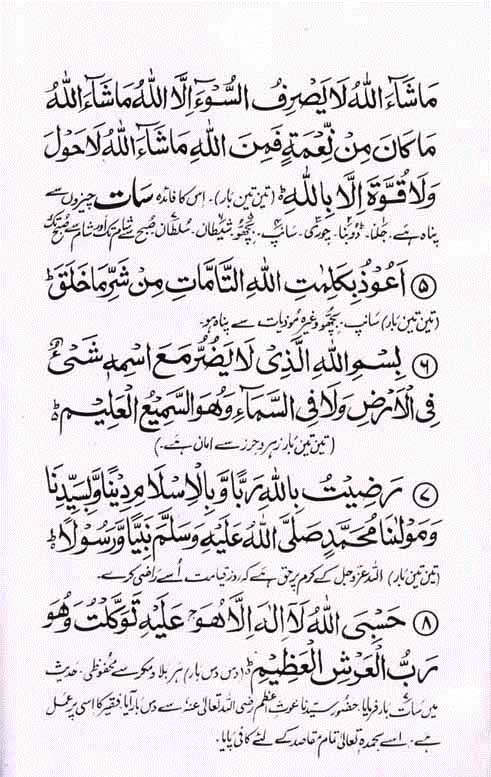 مَاشَآءَ اللّٰهُ لَا يَصْرِفُ السُّوْٓءَ اِلَّا اللّٰهُ مَاشَآءَ اللّٰهُ
مَا كَانَ مِنْ نِّعْمَةٍ فَمِنَ اللّٰهِ مَاشَآءَ اللّٰهُ لَا حَوْلَ
وَلَا قُوَّةَ اِلَّا بِاللّٰهِ ؕ (تین تین بار)۔ اس کا فائدہ سات چیزوں سے
پناہ ہے، جلنا۔ ڈوبنا۔ چوری۔ سانپ۔ بچھو۔ شیطان۔ سلطان۔ صبح سے شام تک اور شام سے صبح تک
۵ اَعُوْذُ بِكَلِمٰتِ اللّٰهِ التَّآمَّاتِ مِنْ شَرِّ مَا خَلَقَ ؕ
(تین تین بار) سانپ۔ بچھو وغیرہ موذیات سے پناہ ہو۔
۶ بِسْمِ اللّٰهِ الَّذِیْ لَا يَضُرُّ مَعَ اسْمِهٖ شَیْءٌ
فِی الْاَرْضِ وَلَا فِی السَّمَآءِ وَهُوَ السَّمِيْعُ الْعَلِيْمُ ؕ
(تین تین بار زہر و حرز سے امان ہے۔)
۷ رَضِيْتُ بِاللّٰهِ رَبًّا وَّ بِالْاِسْلَامِ دِيْنًا وَّ بِسَيِّدِنَا
وَمَوْلٰنَا مُحَمَّدٍ صَلَّى اللّٰهُ عَلَيْهِ وَسَلَّمَ نَبِيًّا وَّ رَسُوْلًا ؕ
(تین تین بار) اللہ عزوجل کے کرم پر حق ہے کہ روز قیامت اُسے راضی کرے۔
۸ حَسْبِیَ اللّٰهُ لَآ اِلٰهَ اِلَّا هُوَ عَلَيْهِ تَوَكَّلْتُ وَهُوَ
رَبُّ الْعَرْشِ الْعَظِيْمِ ؕ (دس دس بار) ہر بلا و مکر سے محفوظی۔ حدیث
میں سات بار فرمایا، حضور سیدنا غوث اعظم رضی اللہ تعالیٰ عنہ سے دس بار آیا، فقیر کا اسی پر عمل
ہے۔ اسے بحمدہٖ تعالیٰ تمام مقاصد کے لئے کافی پایا۔